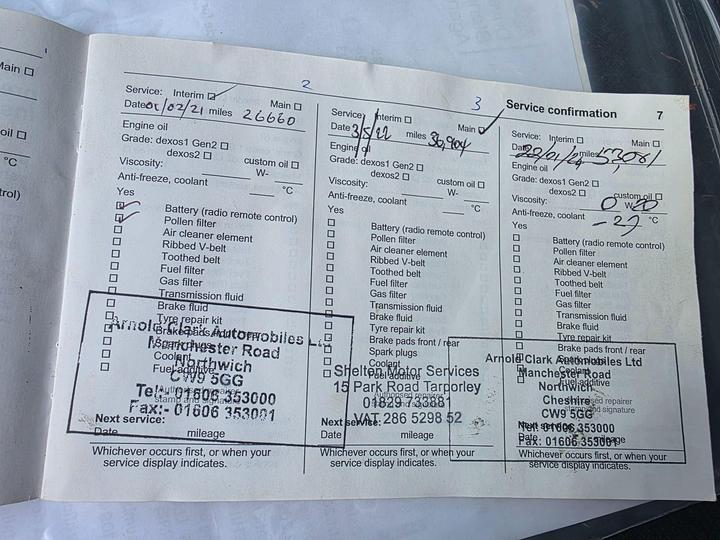 Main ☐
oil ☐
°C
trol)
2
Service: Interim ☐ Main ☐
Date 01/02/21 miles 26660
Engine oil
Grade: dexos1 Gen2 ☐
dexos2 ☐ custom oil ☐
Viscosity: W-
Anti-freeze, coolant °C
Yes
Battery (radio remote control)
Pollen filter
Air cleaner element
Ribbed V-belt
Toothed belt
Fuel filter
Gas filter
Transmission fluid
Brake fluid
Tyre repair kit
Arnold Clark Automobiles Ltd
Manchester Road
Northwich
CW9 5GG
Tel:- 01606 353000
Fax:- 01606 353001
Coolant
Fuel additive
Authorised repairer
stamp and signature
Next service:
Date mileage
Whichever occurs first, or when your
service display indicates.
Service: Interim ☐ Main ☐
Date 3/5/22 miles 36,904
Engine oil
Grade: dexos1 Gen2 ☐
dexos2 ☐ custom oil ☐
Viscosity: W-
Anti-freeze, coolant °C
Yes
Battery (radio remote control)
Pollen filter
Air cleaner element
Ribbed V-belt
Toothed belt
Fuel filter
Gas filter
Transmission fluid
Brake fluid
Tyre repair kit
Brake pads front / rear
Spark plugs
Coolant
Fuel additive
Shelton Motor Services
15 Park Road Tarporley
01829 733881
VAT 286 5298 52
Next service:
Date mileage
Whichever occurs first, or when your
service display indicates.
3
Service confirmation 7
Service: Interim ☐ Main ☐
Date miles
Engine oil
Grade: dexos1 Gen2 ☐
dexos2 ☐ custom oil ☐
Viscosity: 0 W- 20
Anti-freeze, coolant -27 °C
Yes
Battery (radio remote control)
Pollen filter
Air cleaner element
Ribbed V-belt
Toothed belt
Fuel filter
Gas filter
Transmission fluid
Brake fluid
Tyre repair kit
Brake pads front / rear
Arnold Clark Automobiles Ltd
Manchester Road
Northwich
Cheshire
CW9 5GG
Tel: 01606 353000
Fax: 01606 353001
Coolant
Fuel additive
stamp and signature
Next service:
Date mileage
Whichever occurs first, or when your
service display indicates.